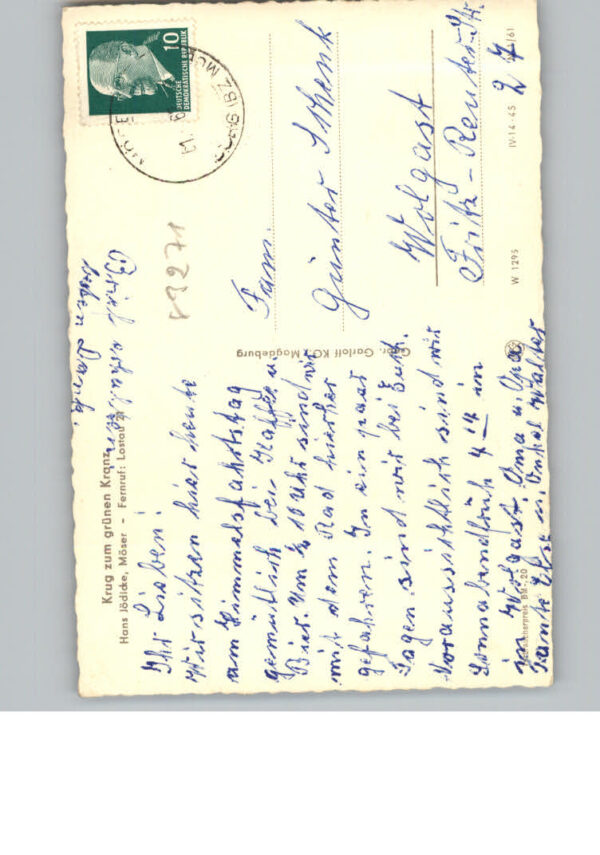 Krug zum grünen Kranz
Hans Jödicke, Möser – Fernruf: Lostau 21
Brief erhalten
lieben Dank.
Ihr Lieben!
Wir sitzen hier heute
am Himmelsfahrtstag
gemütlich bei Kaffee u.
Bier. Um ½ 10 Uhr sind wir
mit dem Rad hierher
gefahren. In ein paar
Tagen sind wir bei Euch.
Voraussichtlich sind wir
Sonnabend früh 4 im
in Wolgast. Oma u. Opa
Tante u. Onkel Walter
BM -.20
Gebr. Garloff KG., Magdeburg
10
DEUTSCHE
DEMOKRATISCHE REPUBLIK
(BZ
13271
Fam.
Günter Schenk
Wolgast
Fritz-Reuter-Str.
27
W 1295
IV-14-45
/61